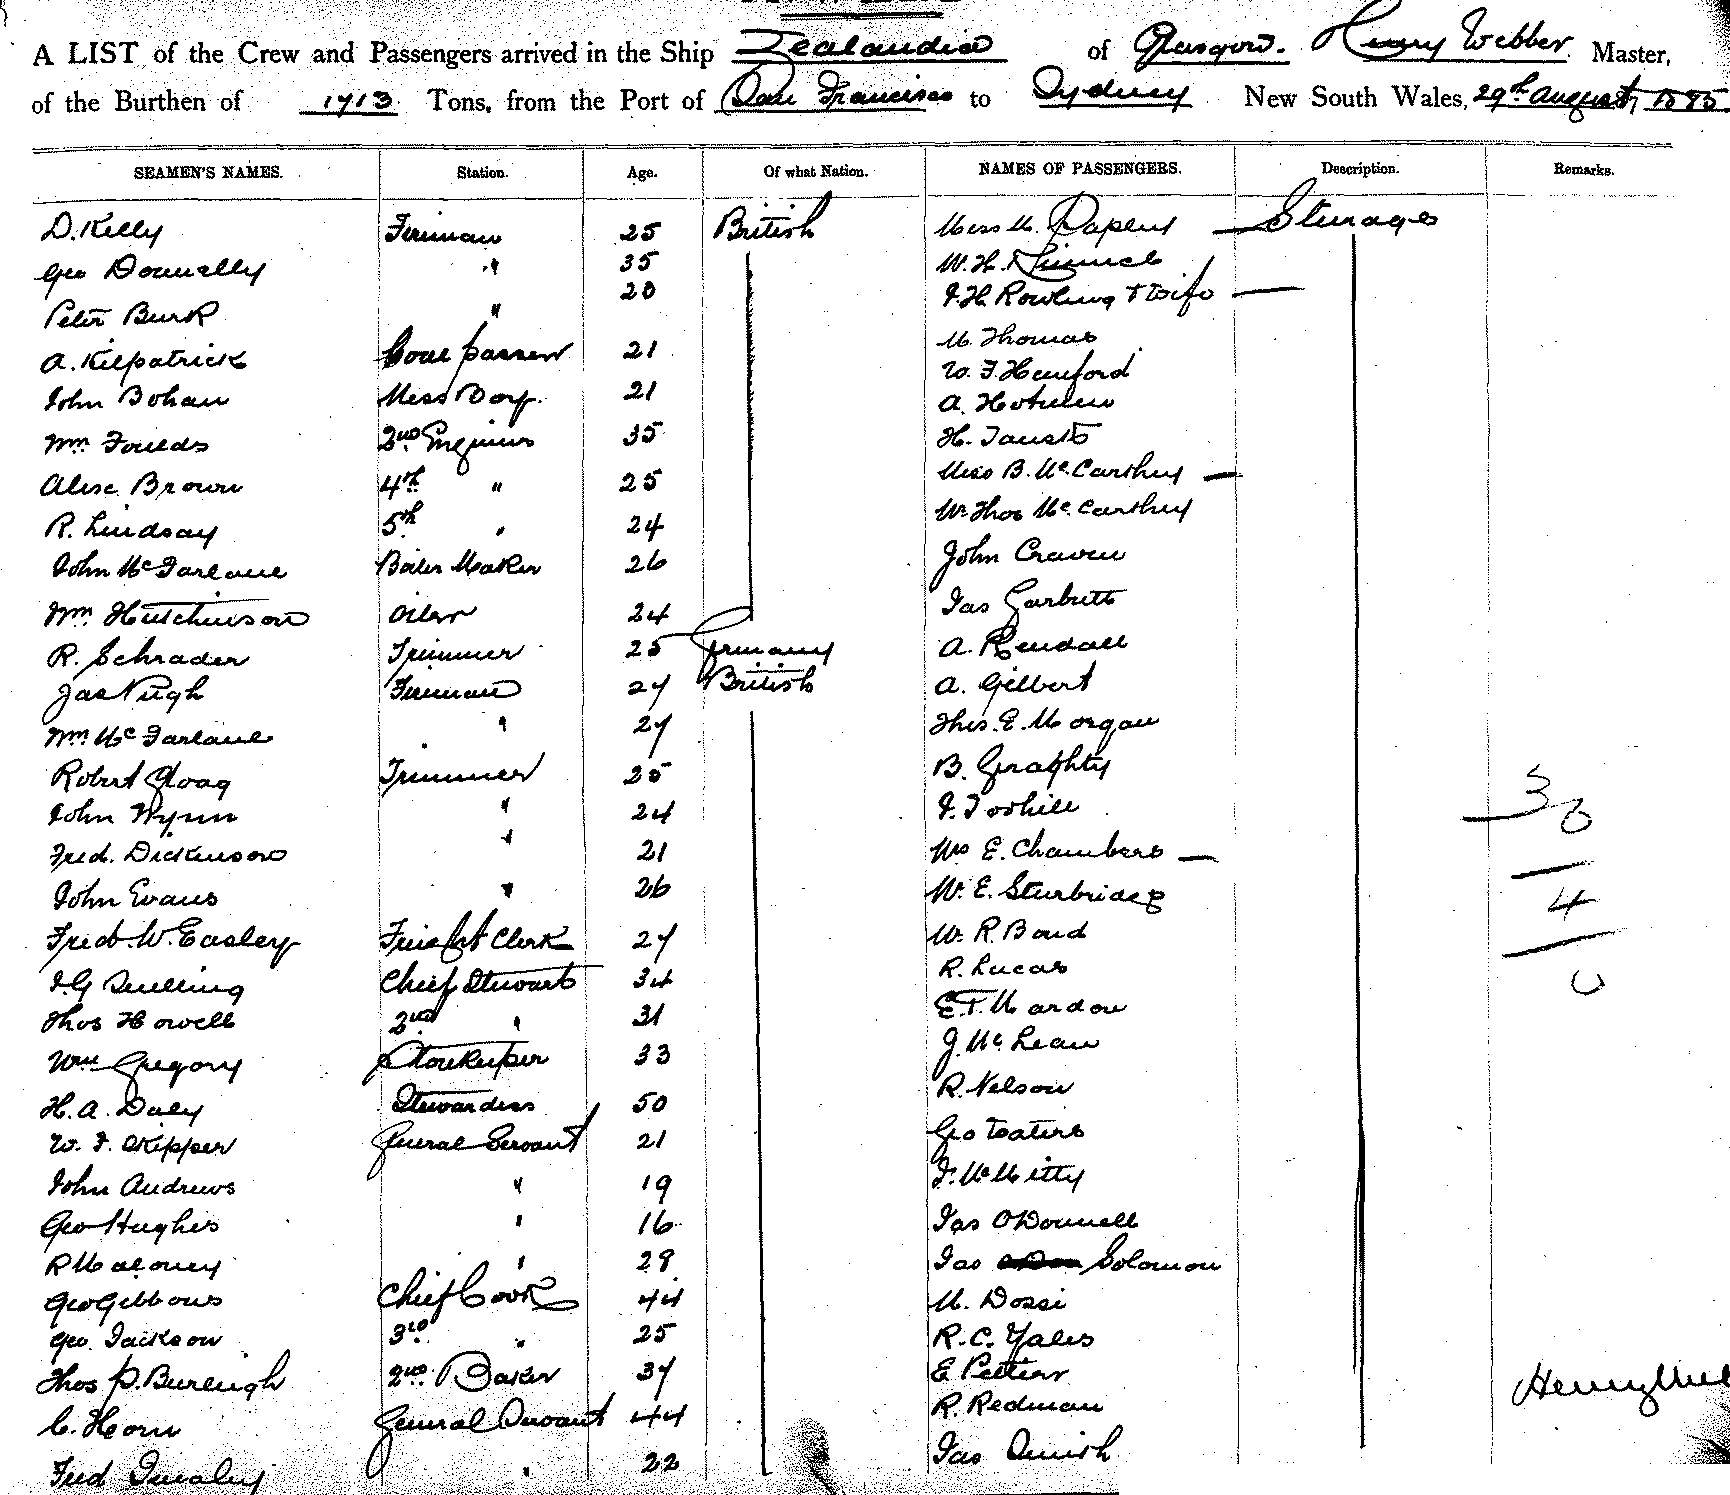 A LIST of the Crew and Passengers arrived in the Ship Zealandia of Glasgow. Henry Webber Master,
of the Burthen of 1713 Tons, from the Port of San Francisco to Sydney New South Wales, 29th August, 1885
SEAMEN'S NAMES. Station. Age. Of what Nation. NAMES OF PASSENGERS. Description. Remarks.
D. Kelly Fireman 25 British Miss M. Steerage
Geo Donnelly " 35 W. H.
Peter Burk " 20 J. H. Rowling & Wife
A. Kilpatrick Coal passer 21 M Thomas
John Bohan Mess Boy. 21 W. F. Hanford
Wm Foulds 2nd Engineer 35 A.
Alexr Brown 4th " 25 H. Fausts
R. Lindsay 5th " 24 Miss B. McCarthy
John McFarlane Boiler Maker 26 Mr Thos McCarthy
Wm Hutchinson Oiler 24 John Craven
R. Schrader Trimmer 25 Germany Jas Garbutt
Jas Pugh Fireman 27 British A. Rendall
Wm McFarlane " 27 A. Gilbert
Robert Gloag Trimmer 25 Thos. E. Morgan
John Wynn " 24 B. Geraghty
Fred. Dickinson " 21 J. Toohill 3
John Evans " 26 Mrs E. Chambers
Fred. W. Easley Freight Clerk 27 W. E. Sturbridge 4
J. G Snelling Chief Steward 34 W. R. Bond
Thos Howell 2nd " 31 R. Lucas
Wm Gregory Storekeeper 33 E. T. Mardon
H. A. Daly Stewardess 50 J. McLean
W. F. Skipper General Servant 21 R. Nelson
John Andrews " 19 Geo Waters
Geo Hughes " 16 F. McMitty
R Maloney " 29 Jas O'Donnell
Geo Gibbons Chief Cook 44 Jas Solomon
Geo. Jackson 3rd " 25 M. Dossi
Thos P. Burleigh 2nd Baker 37 R. C. Yales
C. Horn General Servant 44 E Peltier Henry
Fred " 22 R. Redman
Jas Smith